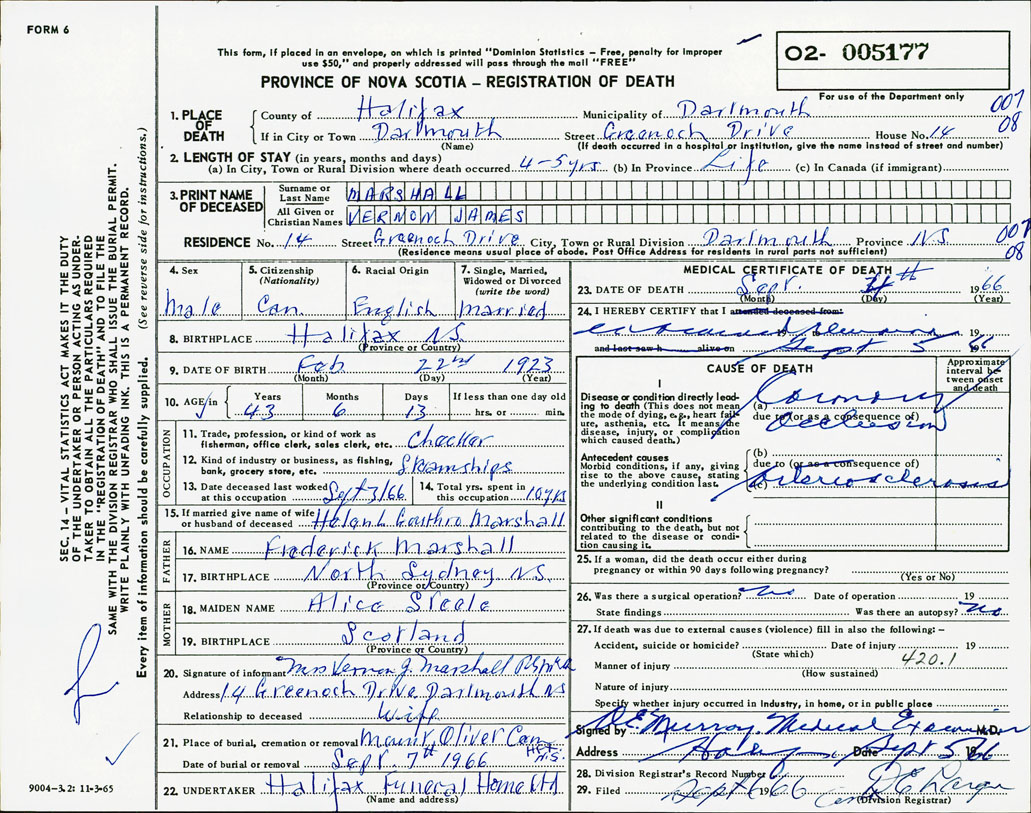 FORM 6
This form, if placed in an envelope, on which is printed "Dominion Statistics – Free, penalty for improper
use $50," and properly addressed will pass through the mail "FREE"
O2- 005177
For use of the Department only
PROVINCE OF NOVA SCOTIA – REGISTRATION OF DEATH
007
08
1. PLACE OF DEATH
County of Halifax Municipality of Dartmouth
If in City or Town Dartmouth Street Greenoch Drive House No. 14
(Name) (If death occurred in a hospital or institution, give the name instead of street and number)
2. LENGTH OF STAY (in years, months and days)
(a) In City, Town or Rural Division where death occurred 4-5 yrs (b) In Province Life (c) In Canada (if immigrant)
3. PRINT NAME OF DECEASED
Surname or Last Name MARSHALL
All Given or Christian Names VERNON JAMES
RESIDENCE No. 14 Street Greenoch Drive City, Town or Rural Division Dartmouth Province N.S.
007
08
(Residence means usual place of abode. Post Office Address for residents in rural parts not sufficient)
4. Sex
Male
5. Citizenship
(Nationality)
Can.
6. Racial Origin
English
7. Single, Married,
Widowed or Divorced
(write the word)
Married
8. BIRTHPLACE Halifax N.S.
(Province or Country)
9. DATE OF BIRTH Feb 22nd 1923
(Month) (Day) (Year)
10. AGE in Years Months Days If less than one day old
43 6 13 hrs. or min.
OCCUPATION
11. Trade, profession, or kind of work as
fisherman, office clerk, sales clerk, etc. Checker
12. Kind of industry or business, as fishing,
bank, grocery store, etc. Steamships
13. Date deceased last worked
at this occupation Sept 3/66
14. Total yrs. spent in
this occupation 10 yrs
15. If married give name of wife
or husband of deceased Helen L Gouthro Marshall
FATHER
16. NAME Frederick Marshall
17. BIRTHPLACE North Sydney N.S.
(Province or Country)
MOTHER
18. MAIDEN NAME Alice Steele
19. BIRTHPLACE Scotland
(Province or Country)
20. Signature of informant Mrs Vernon J. Marshall
Address 14 Greenoch Drive Dartmouth NS
Relationship to deceased Wife
21. Place of burial, cremation or removal Mount Oliver Cem
Date of burial or removal Sept. 7th 1966
22. UNDERTAKER Halifax Funeral Home Ltd
(Name and address)
MEDICAL CERTIFICATE OF DEATH
23. DATE OF DEATH Sept. 4th 1966
(Month) (Day) (Year)
24. I HEREBY CERTIFY that I attended deceased from:
19 to 19
and last saw h alive on Sept 5 1966
CAUSE OF DEATH
Approximate
interval between onset
and death
I
Disease or condition directly leading to death (This does not mean
the mode of dying, e.g., heart failure, asthenia, etc. It means the
disease, injury, or complication
which caused death.)
(a) Coronary
due to (or as a consequence of)
Occlusion
Antecedent causes
Morbid conditions, if any, giving
rise to the above cause, stating
the underlying condition last.
(b)
due to (or as a consequence of)
(c) Arteriosclerosis
II
Other significant conditions
contributing to the death, but not
related to the disease or condition causing it.
25. If a woman, did the death occur either during
pregnancy or within 90 days following pregnancy?
(Yes or No)
26. Was there a surgical operation? No Date of operation 19
State findings Was there an autopsy? No
27. If death was due to external causes (violence) fill in also the following: –
Accident, suicide or homicide? Date of injury 19
(State which)
420.1
Manner of injury
(How sustained)
Nature of injury
Specify whether injury occurred in industry, in home, or in public place
Signed by D E Murray Medical Examiner M.D.
Address Date Sept 5 1966
28. Division Registrar's Record Number
29. Filed Sept 6 1966
(Division Registrar)
SEC. 14 – VITAL STATISTICS ACT MAKES IT THE DUTY
OF THE UNDERTAKER OR PERSON ACTING AS UNDERTAKER TO OBTAIN ALL THE PARTICULARS REQUIRED
IN THE "REGISTRATION OF DEATH" AND TO FILE THE
SAME WITH THE DIVISION REGISTRAR WHO SHALL ISSUE THE BURIAL PERMIT.
WRITE PLAINLY WITH UNFADING INK. THIS IS A PERMANENT RECORD.
Every item of information should be carefully supplied. (See reverse side for instructions.)
9004-3.2: 11-3-65